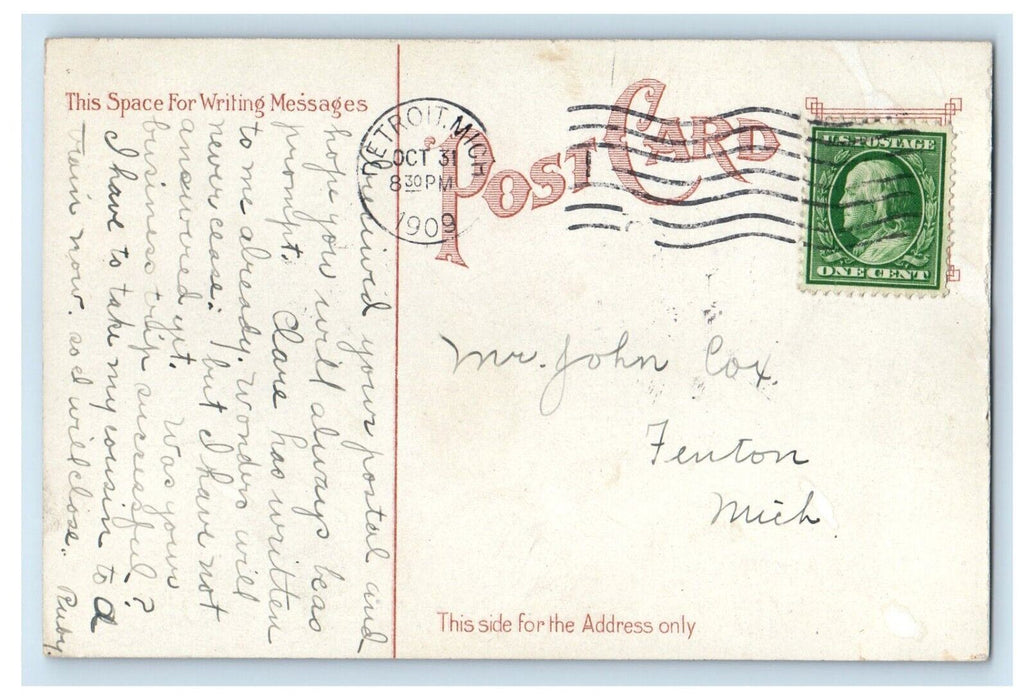 This Space For Writing Messages
Received your postal and
hope you will always be as
prompt. Clare has written
to me already. Wonders will
never cease: but I have not
answered yet. Was your
business trip successful?
I have to take my cousin to a
train now. so I will close.
Ruby.
POST CARD
DETROIT, MICH
OCT 31
8 30 PM
1909
U.S. POSTAGE
ONE CENT
Mr. John Cox.
Fenton
Mich
This side for the Address only